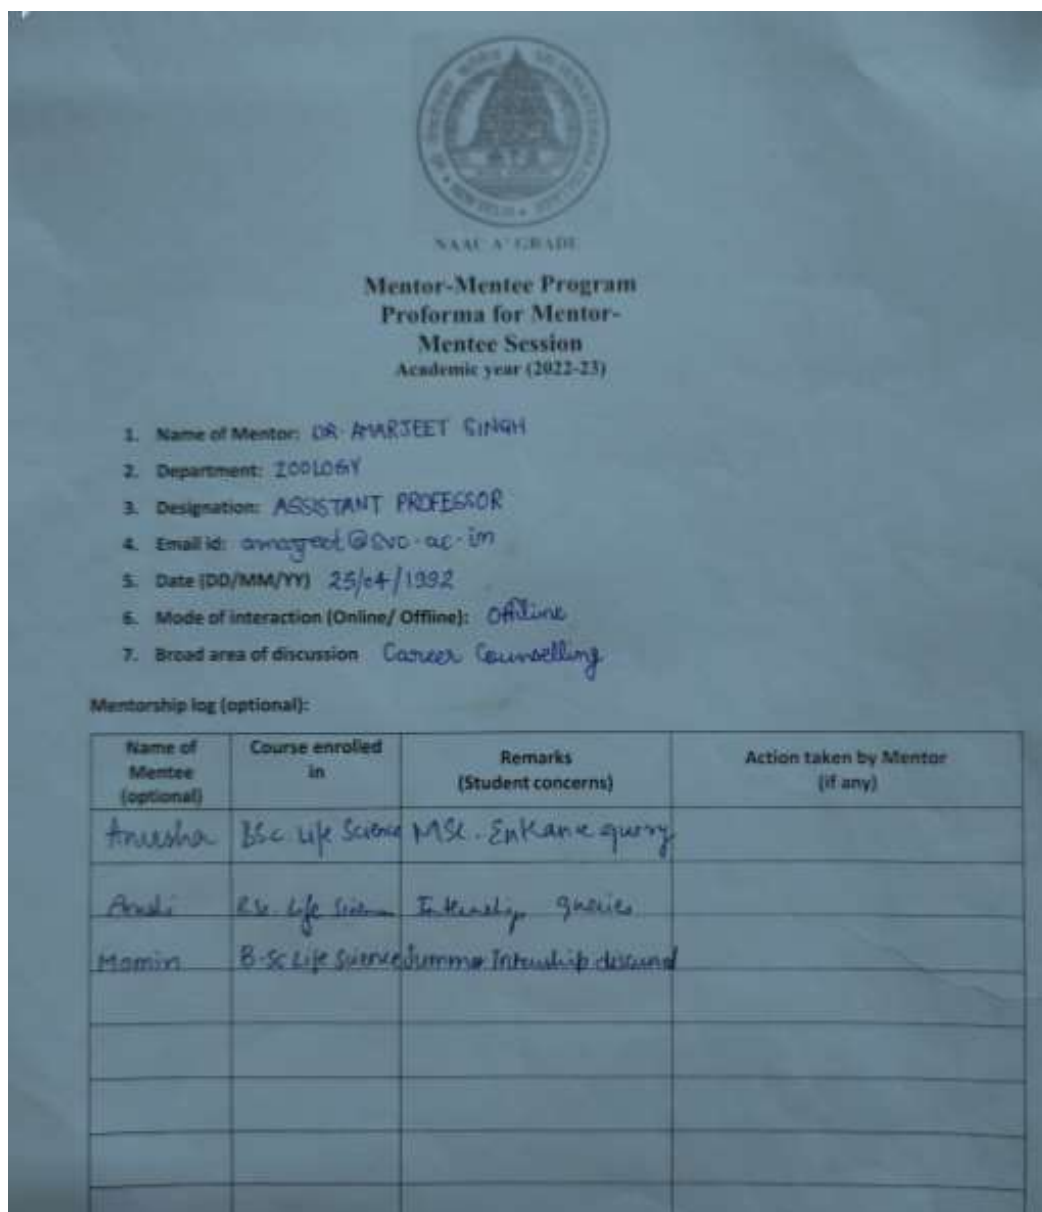 NAAC A+ GRADE
Mentor-Mentee Program
Proforma for Mentor-
Mentee Session
Academic year (2022-23)
1. Name of Mentor: DR. AMARJEET SINGH
2. Department: ZOOLOGY
3. Designation: ASSISTANT PROFESSOR
4. Email id: amarjeet@svc.ac.in
5. Date (DD/MM/YY) 25/04/1992
6. Mode of interaction (Online/ Offline): Offline
7. Broad area of discussion Career Counselling
Mentorship log (optional):
Name of Mentee (optional) Course enrolled in Remarks (Student concerns) Action taken by Mentor (if any)
Anusha BSc. Life Science MSc. Entrance query
BSc. Life Science Internship queries
Momin B.Sc Life Science Summer Internship discussed